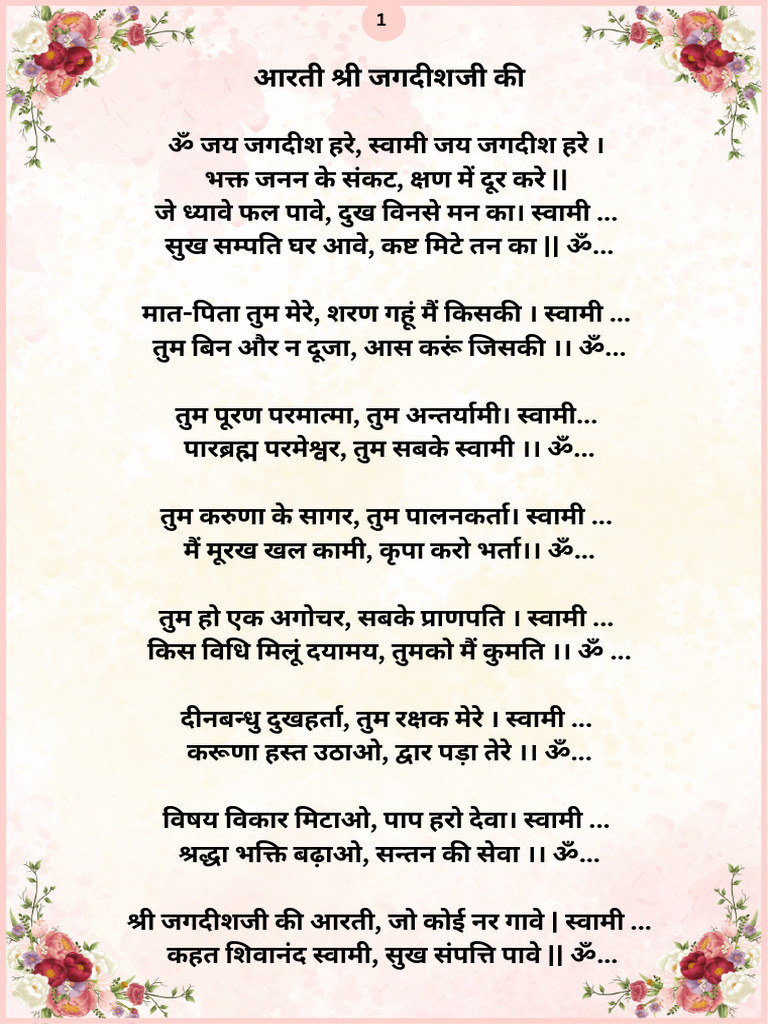 1
आरती श्री जगदीशजी की
ॐ जय जगदीश हरे, स्वामी जय जगदीश हरे ।
भक्त जनन के संकट, क्षण में दूर करे ||
जे ध्यावे फल पावे, दुख विनसे मन का। स्वामी ...
सुख सम्पति घर आवे, कष्ट मिटे तन का || ॐ...
मात-पिता तुम मेरे, शरण गहूं मैं किसकी । स्वामी ...
तुम बिन और न दूजा, आस करूं जिसकी ।। ॐ...
तुम पूरण परमात्मा, तुम अन्तर्यामी। स्वामी...
पारब्रह्म परमेश्वर, तुम सबके स्वामी ।। ॐ...
तुम करुणा के सागर, तुम पालनकर्ता। स्वामी ...
मैं मूरख खल कामी, कृपा करो भर्ता।। ॐ...
तुम हो एक अगोचर, सबके प्राणपति । स्वामी ...
किस विधि मिलूं दयामय, तुमको मैं कुमति ।। ॐ ...
दीनबन्धु दुखहर्ता, तुम रक्षक मेरे । स्वामी ...
करूणा हस्त उठाओ, द्वार पड़ा तेरे ।। ॐ...
विषय विकार मिटाओ, पाप हरो देवा। स्वामी ...
श्रद्धा भक्ति बढ़ाओ, सन्तन की सेवा ।। ॐ...
श्री जगदीशजी की आरती, जो कोई नर गावे | स्वामी ...
कहत शिवानंद स्वामी, सुख संपत्ति पावे || ॐ...